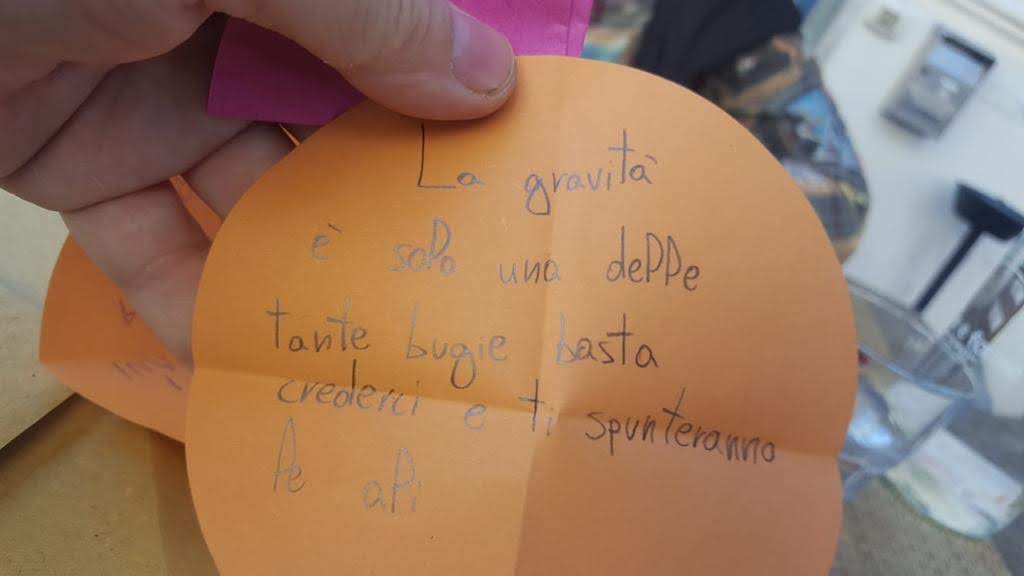 La gravità
è solo una delle
tante bugie basta
crederci e ti spunteranno
le ali